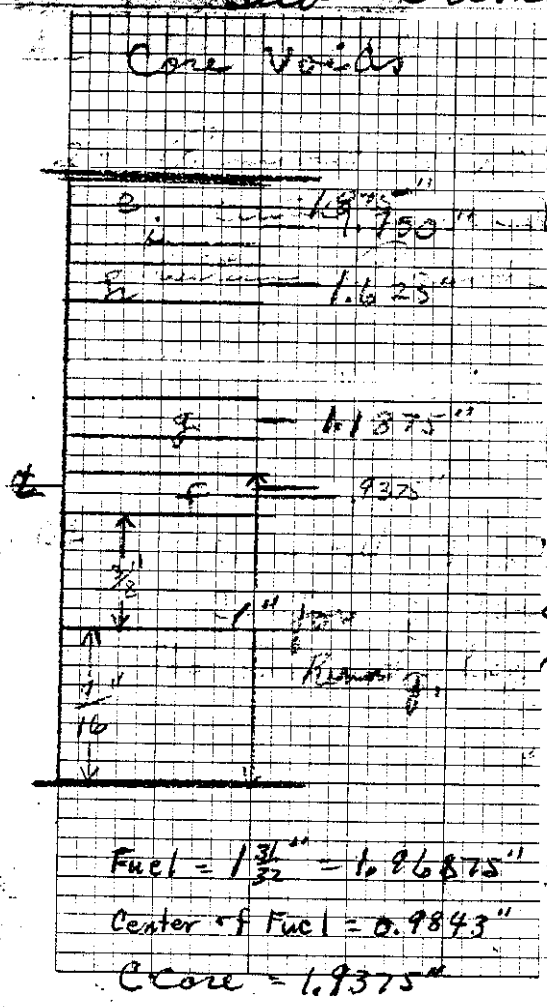 Core Voids
1.875"
1.750"
i
h
1.625"
g
1.1875"
℄
f
.9375"
3/8"
1" for
7/16"
Fuel = 1 31/32" = 1.96875"
Center of Fuel = 0.9843"
C Core = 1.9375"